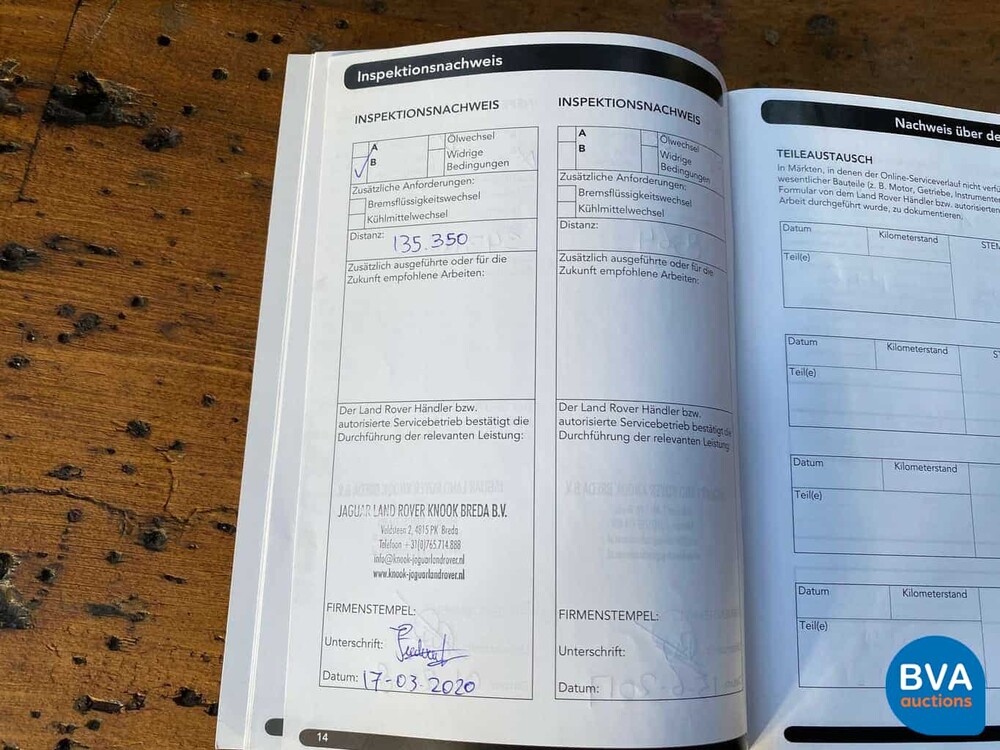 Inspektionsnachweis
INSPEKTIONSNACHWEIS
A
B
Ölwechsel
Widrige
Bedingungen
Zusätzliche Anforderungen:
Bremsflüssigkeitswechsel
Kühlmittelwechsel
Distanz: 135.350
Zusätzlich ausgeführte oder für die
Zukunft empfohlene Arbeiten:
Der Land Rover Händler bzw.
autorisierte Servicebetrieb bestätigt die
Durchführung der relevanten Leistung:
JAGUAR LAND ROVER KNOOK BREDA B.V.
Veldsteen 2, 4815 PK Breda
Telefoon +31(0)765.714.888
info@knook-jaguarlandrover.nl
www.knook-jaguarlandrover.nl
FIRMENSTEMPEL:
Unterschrift:
Datum: 17-03-2020
14
INSPEKTIONSNACHWEIS
A
B
Ölwechsel
Widrige
Bedingungen
Zusätzliche Anforderungen:
Bremsflüssigkeitswechsel
Kühlmittelwechsel
Distanz:
Zusätzlich ausgeführte oder für die
Zukunft empfohlene Arbeiten:
Der Land Rover Händler bzw.
autorisierte Servicebetrieb bestätigt die
Durchführung der relevanten Leistung:
FIRMENSTEMPEL:
Unterschrift:
Datum:
Nachweis über de
TEILEAUSTAUSCH
In Märkten, in denen der Online-Serviceverlauf nicht verfü
wesentlicher Bauteile (z. B. Motor, Getriebe, Instrumenten
Formular von dem Land Rover Händler bzw. autorisierten
Arbeit durchgeführt wurde, zu dokumentieren.
Datum Kilometerstand STEM
Teil(e)
Datum Kilometerstand ST
Teil(e)
Datum Kilometerstand
Teil(e)
Datum Kilometerstand
Teil(e)
BVA
auctions